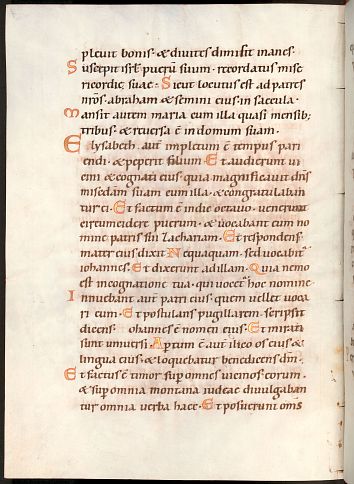 pleuit bonis. & diuites dimisit inanes.
Suscepit isrł pueru suum. recordatus mise
ricordię suae. Sicut locutus est ad patres
nrōs. abraham & semini eius in saecula.
Mansit autem maria cum illa quasi mensib;
tribus. & reuersa ē in domum suam.
Elysabeth. aut impletum ē tempus pari
endi. & peperit filium. Et audierunt ui
cini & cognati eius. quia magnificauit dn̄s
miscdam suam cum illa. & congratulaban
tur ei. Et factum ē indie octauo. uenerunt
circumcidere puerum. & uocabant eum no
mine patris sui zachariam. Et respondens
mater eius dixit. Nequaquam. sed uocabit
iohannes. Et dixerunt adillam. Quia nemo
est incognatione tua. qui uocet hoc nomine
Innuebant aut patri eius. quem uellet uoca
ri eum. Et postulans pugillarem. scripsit
dicens. Iohannes ē nomen eius. Et mirati
sunt uniuersi. Aptum ē aut ilico os eius &
lingua eius. & loquebatur benedicens dm̄.
Et factus ē timor sup omnes uicinos eorum.
& sup omnia montana iudeae diuulgaban
tur omnia uerba haec. Et posuerunt om̄s